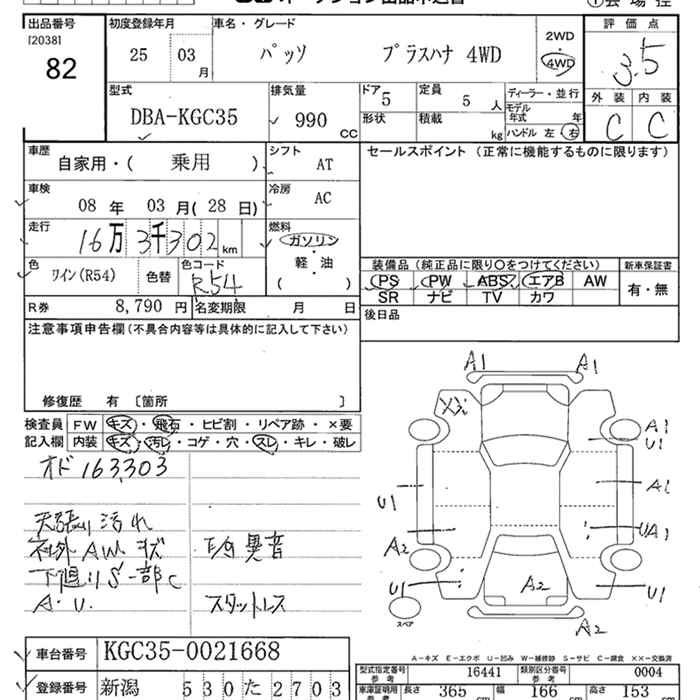 出品番号 初度登録年月 車名・グレード 評価点
[2038]
82
25 03 月 パッソ プラスハナ 4WD 2WD・4WD 3.5
型式 排気量 ドア 5 定員 5 人 ディーラー・並行 外装 内装
DBA-KGC35 990 cc 形状 積載 kg モデル年式 年 C C
ハンドル 左 右
車歴 自家用・( 乗用 ) シフト AT セールスポイント (正常に機能するものに限ります)
車検 08 年 03 月 (28 日) 冷房 AC
走行 16万3千302 km 燃料 ガソリン
軽・油
( )
色 ワイン(R54) 色替 色コード R54
装備品 (純正品に限り○をつけてください) 新車保証書
PS PW ABS エアB AW 有・無
SR ナビ TV カワ
R券 8,790 円 名変期限 月 日 後日品
注意事項申告欄 (不具合内容等は具体的に記入して下さい)
修復歴 有 〔箇所 〕
検査員 FW キズ・飛石・ヒビ割・リペア跡・×要
記入欄 内装 キズ・汚レ・コゲ・穴・スレ・キレ・破レ
オド 163,303
天張り汚れ
社外AW キズ 異音
下廻りS一部C
A・U. スタットレス
A1 A1
A1
U1
U1 A1
A2 UA1
U1 A2 U1
スペア
A2
A-キズ E-エクボ U-凹み W-補修跡 S-サビ C-腐食 ××-交換済
車台番号 KGC35-0021668
登録番号 新潟 530 た 2703
型式指定番号 参考 16441 類別区分番号 参考 0004
車庫証明用 参考 長さ 365 cm 幅 166 cm 高さ 153 cm